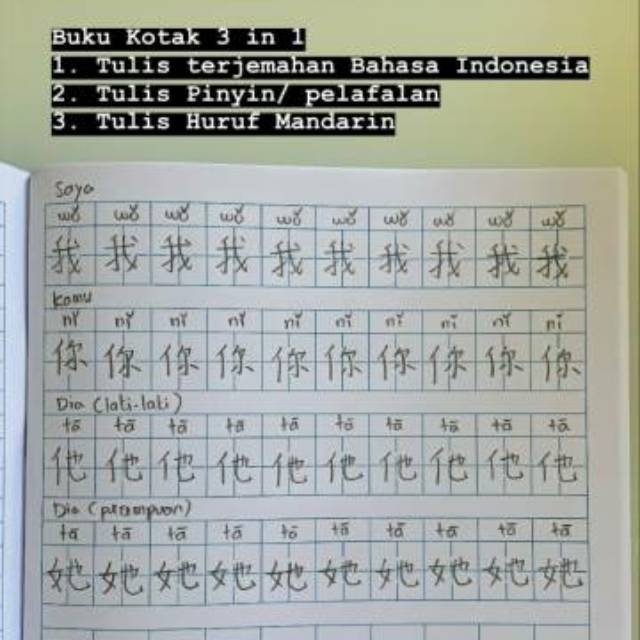 Buku Kotak 3 in 1
1. Tulis terjemahan Bahasa Indonesia
2. Tulis Pinyin/ pelafalan
3. Tulis Huruf Mandarin
Saya
wǒ wǒ wǒ wǒ wǒ wǒ wǒ wǒ wǒ wǒ
我 我 我 我 我 我 我 我 我 我
Kamu
nǐ nǐ nǐ nǐ nǐ nǐ nǐ nǐ nǐ nǐ
你 你 你 你 你 你 你 你 你 你
Dia (lati-lati)
tā tā tā tā tā tā tā tā tā tā
他 他 他 他 他 他 他 他 他 他
Dia (perempuan)
tā tā tā tā tā tā tā tā tā tā
她 她 她 她 她 她 她 她 她 她